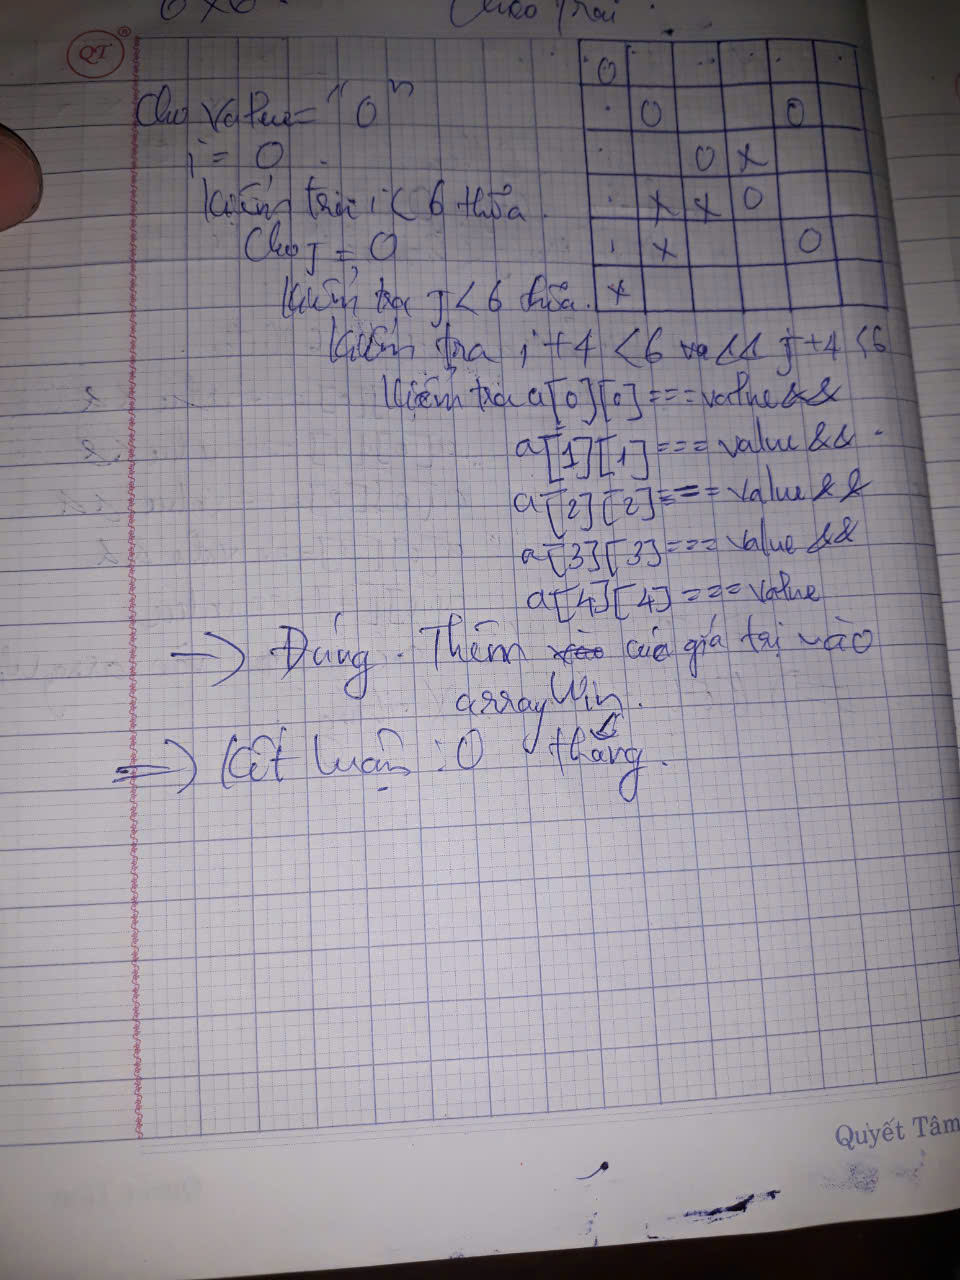 6x6 chéo trái
QT
®
Cho value = "0"
i = 0
Kiểm tra i < 6 thỏa.
Cho j = 0
Kiểm tra j < 6 thỏa.
Kiểm tra i + 4 < 6 và && j + 4 < 6
Kiểm tra a[0][0] === value &&
a[1][1] === value &&
a[2][2] === value &&
a[3][3] === value &&
a[4][4] === value
→ Đúng. Thêm các giá trị vào
arrayWin.
⇒ Kết luận : 0 thắng.
0
0 0
0 x
x x 0
x 0
x
Quyết Tâm